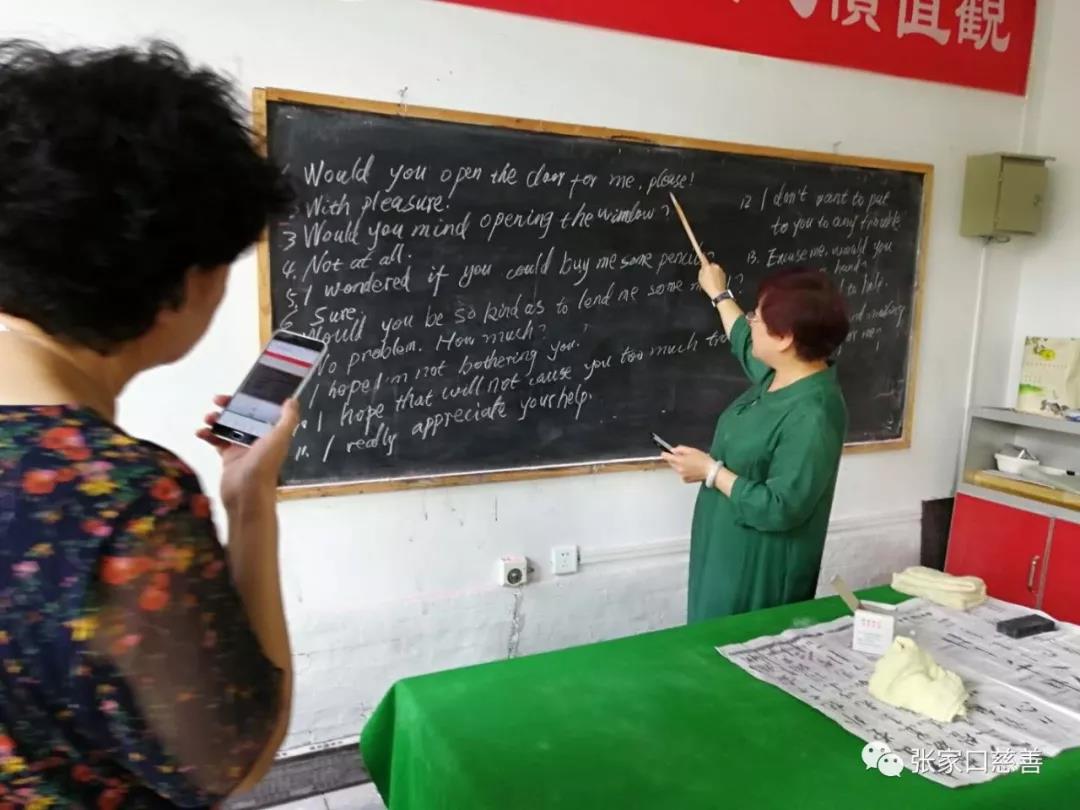 價值觀
Would you open the door for me, please!
With pleasure!
3 Would you mind opening the window?
4. Not at all.
5. I wondered if you could buy me some
6 Sure.
Would you be so kind as to lend me some
No problem. How much?
I hope I'm not bothering you.
I hope that will not cause you too much
11. I really appreciate your help.
12 I don't want to put
to you to any trouble
13. Excuse me, would you
hand?
to help.
or me!
张家口慈善